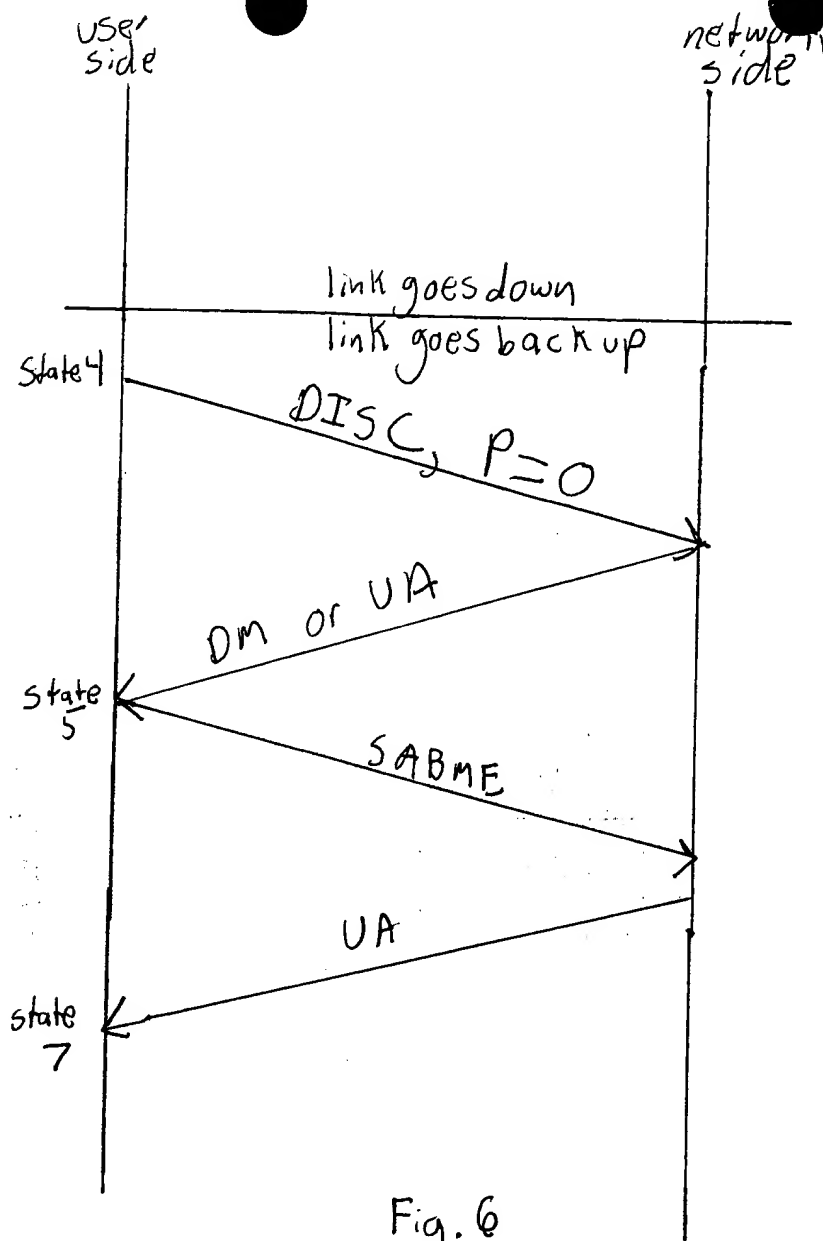 user
side
network
side
link goes down
link goes back up
State 4
DISC, P=0
DM or UA
state
5
SABME
UA
state
7
Fig. 6